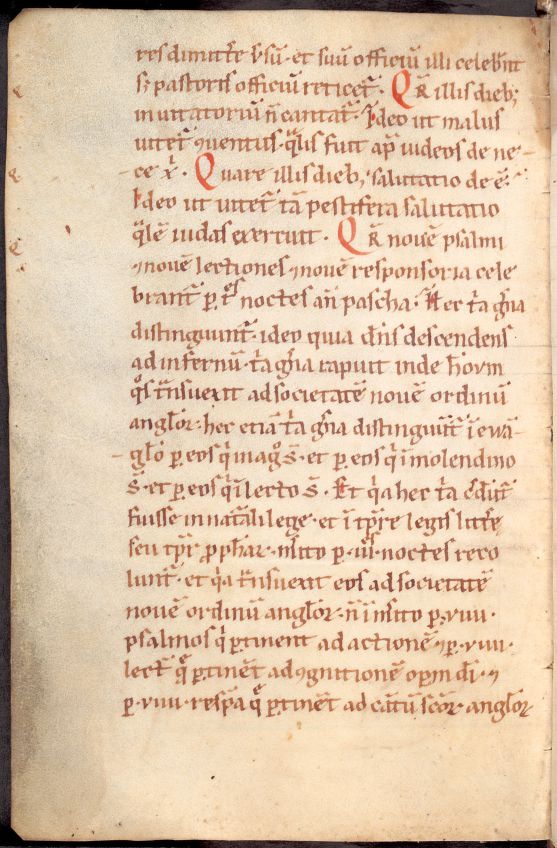 res dimittēt usū · et suū officiū illi celebrānt
s; pastoris officiū reticet̄ · Qr̄ illis dieb;
inuitatoriū n̄ cantat̄ · Ideo ut malus
uitet̄ ꝯuentus · q̄lis fuit ap̄ iudeos de ne-
ce x̄ · Quare illis dieb; salutatio de ē ·
Ideo ut uitet̄ tā pestifera salutatio
q̄lē iudas exercuit · Qr̄ nouē psalmi
⁊ nouē lectiones ⁊ nouē responsoria cele
brant̄ p̱ t̄s noctes an̄ pascha · Hec t̄a gn̄a
distinguunt̄ · ideo quia dn̄s descendens
ad infernū · t̄a gn̄a rapuit inde hoꝝ
q̊s tn̄suexit ad societatē nouē ordinū
angl̄oꝝ · hec etiā t̄a gn̄a distinguūt̄ ī ewā-
gl̄o p̱ eos q̇ in agͦ s̄ · et p̱ eos q̇ ī molendino
s̄ · et p̱ eos q̇ ī lecto s̄ · Et q̇a hec t̄a
fuisse in nat̄ali lege · et ī tp̄re legis litt̄e
seu tp̄r ꝓph̄aꝝ · m̄ito p̱ · iii · noctes reco
lunt̄ · et q̇a tn̄suexit eos ad societatē
nouē ordinū angl̄oꝝ · n̄ īm̄ito p̱ · viiii ·
psalmos q̇ p̱tinent ad actionē ⁊ p̱ · viiii ·
lect̄ q̄ p̱tinēt ad ꝯgnitionē op̱ꝝ dī · ⁊
p̱ · viiii · resp̄a q̄ p̱tinēt ad cātū sc̄oꝝ · angl̄oꝝ